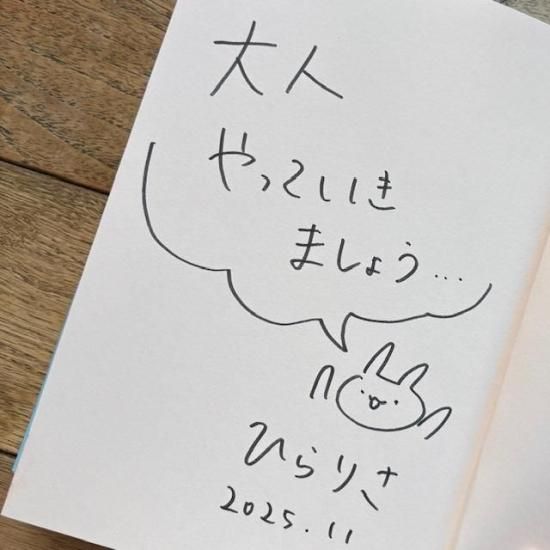 大人
やっていき
ましょう…
ひらりさ
2025.11